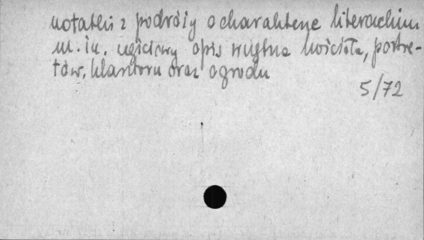 notatki z podróży o charakterze literackim
m. in. częściowy opis wnętrza kościoła, portre-
tów, klasztoru oraz ogrodu
5/72